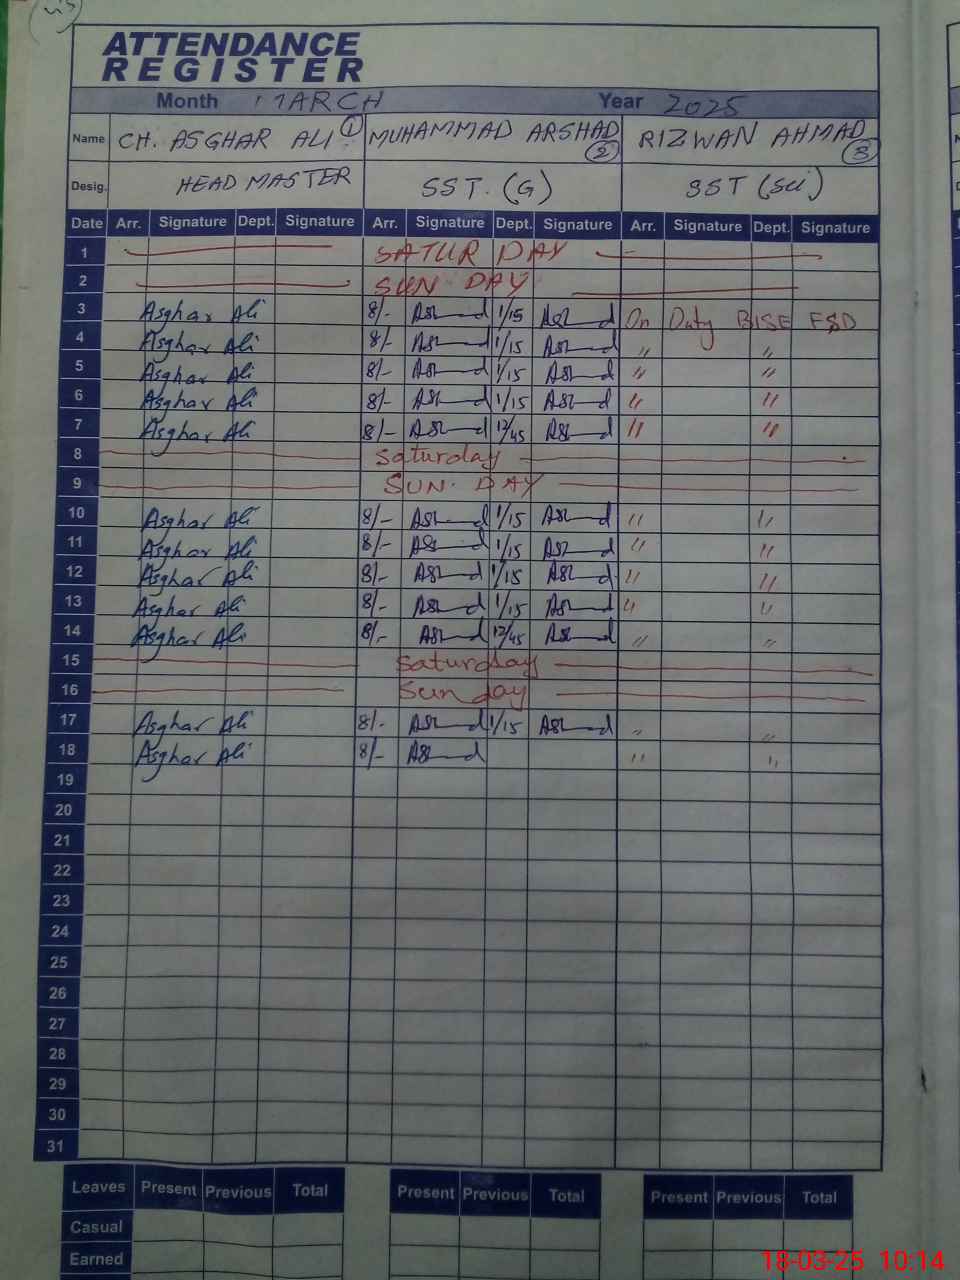 ATTENDANCE
REGISTER
Month MARCH Year 2025
Name CH. ASGHAR ALI ① MUHAMMAD ARSHAD ② RIZWAN AHMAD ③
Desig. HEAD MASTER SST. (G) SST (Sci)
Date Arr. Signature Dept. Signature Arr. Signature Dept. Signature Arr. Signature Dept. Signature
1 SATUR DAY
2 SUN DAY
3 Asghar Ali 8/- 1/15 On Duty BISE FSD
4 Asghar Ali 8/- 1/15 〃 〃
5 Asghar Ali 8/- 1/15 〃 〃
6 Asghar Ali 8/- 1/15 〃 〃
7 Asghar Ali 8/- 12/45 〃 〃
8 Saturday
9 SUN. DAY
10 Asghar Ali 8/- 1/15 〃 〃
11 Asghar Ali 8/- 1/15 〃 〃
12 Asghar Ali 8/- 1/15 〃 〃
13 Asghar Ali 8/- 1/15 〃 〃
14 Asghar Ali 8/- 12/45 〃 〃
15 Saturday
16 Sunday
17 Asghar Ali 8/- 1/15 〃 〃
18 Asghar Ali 8/- 〃 〃
19
20
21
22
23
24
25
26
27
28
29
30
31
Leaves Present Previous Total Present Previous Total Present Previous Total
Casual
Earned
18-03-25 10:14